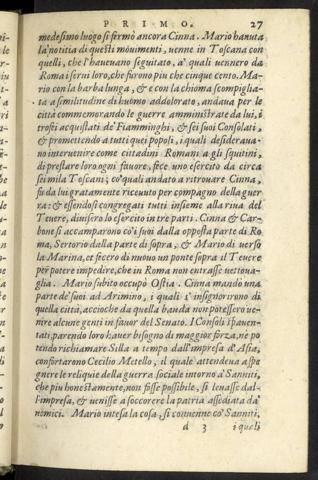 PRIMO. 27
medesimo luogo si fermò ancora Cinna. Mario hauuta
la notitia di questi mouimenti, uenne in Toscana con
quelli, che l'haueuano seguitato, a' quali uennero da
Roma i serui loro, che furono piu che cinque cento. Ma-
rio con la barba lunga, & con la chioma scompiglia-
ta a similitudine di huomo addolorato, andaua per le
città commemorando le guerre amministrate da lui, i
trofei acquistati de' Fiamminghi, & sei suoi Consolati,
& promettendo a tutti quei popoli, i quali desideraua-
no interuenire come cittadini Romani a gli squitini,
di prestare loro ogni fauore, fece uno esercito da circa
sei mila Toscani; co' quali andato a ritrouare Cinna,
fu da lui gratamente riceuuto per compagno della guer-
ra: & essendosi congregati tutti insieme alla riua del
Teuere, diuisero lo esercito in tre parti. Cinna & Car-
bone si accamparono co' i suoi dalla opposta parte di Ro
ma, Sertorio dalla parte di sopra, & Mario di uerso
la Marina, et fecero di nuouo un ponte sopra il Teuere
per potere impedire, che in Roma non entrasse uettoua-
glia. Mario subito occupò Ostia. Cinna mando una
parte de' suoi ad Arimino, i quali s' insignorirono di
quella città, accioche da quella banda non potessero ue-
nire alcune genti in fauor del Senato. I Consoli spauen-
tati, parendo loro hauer bisogno di maggior forza, ne po
tendo richiamare Silla a tempo dall'impresa d' Asia,
confortarono Cecilio Metello, il quale attendeua a spe
gnere le reliquie della guerra sociale intorno a' Sanniti,
che piu honestamente, non fosse possibile, si leuasse dal-
l'impresa, & uenisse a soccorere la patria assediata da'
nimici. Mario intesa la cosa, si conuenne co' Sanniti,
d 3 i quali